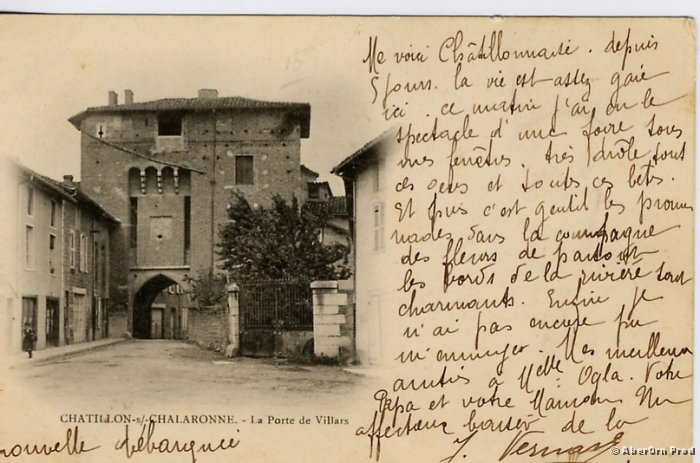 Me voici Châtillonnaise. depuis
5 jours. la vie est assez gaie
ici. ce matin j'ai eu le
spectacle d'une foire sous
mes fenêtres. très drôle tout
ces gens et toutes ces bêtes.
Et puis c'est gentil les prome
nades dans la campagne
des fleurs de partout
les bords de la rivière sont
charmants. Enfin je
n'ai pas encore pu
m'ennuyer. Mes meilleures
amitiés à Melle Olga. Votre
Papa et votre Maman Un
affectueux bonsoir de la
nouvelle débarquée
CHATILLON-s/-CHALARONNE. - La Porte de Villars
© AberOrn Prod